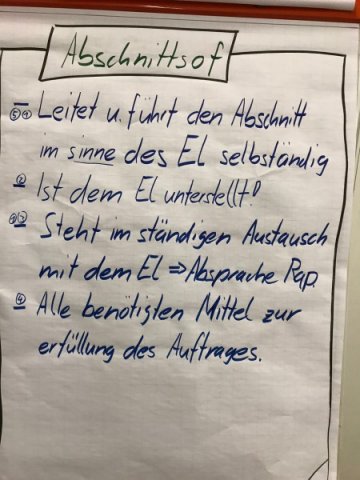 Abschnittsof
Leitet u. führt den Abschnitt
im sinne des El selbständig
② Ist dem El unterstellt!
Steht im ständigen Austausch
mit dem El ⇒ Absprache Rap.
④ Alle benötigten Mittel zur
erfüllung des Auftrages.